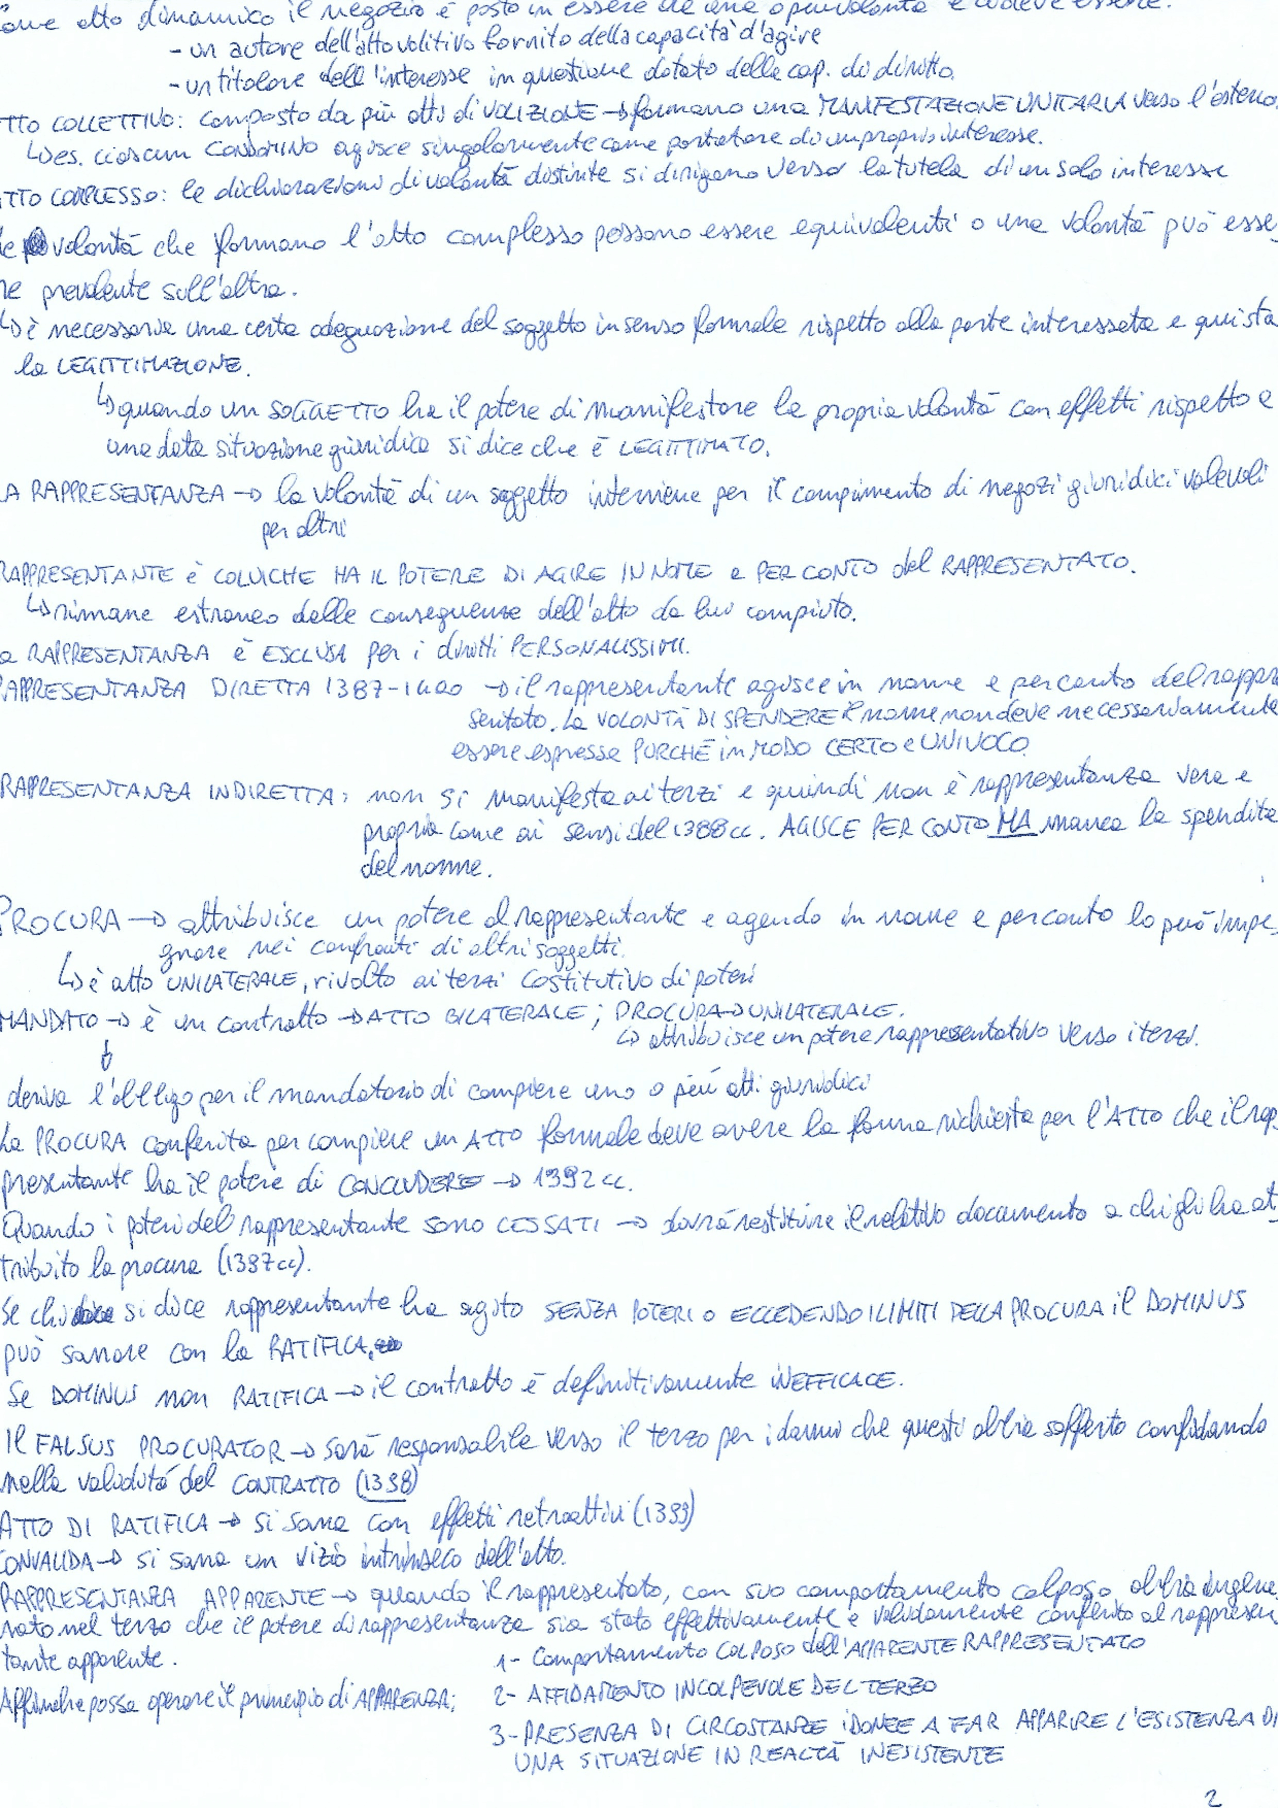 come atto dinamico il negozio è posto in essere da una opera volontà e ci deve essere:
- un autore dell'atto volitivo fornito della capacità d'agire
- un titolare dell'interesse in questione dotato della cap. di diritto.
TTO COLLETTIVO: composto da più atti di VOLIZIONE → formano una MANIFESTAZIONE UNITARIA verso l'esterno.
↳ es. ciascun CONDOMINO agisce singolarmente come portatore di un proprio interesse.
TTO COMPLESSO: le dichiarazioni di volontà distinte si dirigono verso la tutela di un solo interesse
le volontà che formano l'atto complesso possono essere equivalenti o una volontà può esse-
re prevalente sull'altra.
↳ è necessaria una certa adeguazione del soggetto in senso formale rispetto alla parte interessata e questa
la LEGITTIMAZIONE.
↳ quando un SOGGETTO ha il potere di manifestare la propria volontà con effetti rispetto a
una data situazione giuridica si dice che è LEGITTIMATO.
A RAPPRESENTANZA → la volontà di un soggetto interviene per il compimento di negozi giuridici valevoli
per altri
RAPPRESENTANTE è COLUI CHE HA IL POTERE DI AGIRE IN NOME e PER CONTO del RAPPRESENTATO.
↳ rimane estraneo dalle conseguenze dell'atto da lui compiuto.
a RAPPRESENTANZA è ESCLUSA per i diritti PERSONALISSIMI.
RAPPRESENTANZA DIRETTA 1387-1400 → il rappresentante agisce in nome e per conto del rappre
sentato. La VOLONTÀ DI SPENDERE il nome non deve necessariamente
essere espressa PURCHÉ in MODO CERTO e UNIVOCO.
RAPPRESENTANZA INDIRETTA: non si manifesta ai terzi e quindi non è rappresentanza vera e
propria come ai sensi del 1388 cc. AGISCE PER CONTO MA manca la spendita
del nome.
PROCURA → attribuisce un potere al rappresentante e agendo in nome e per conto lo può impe-
gnare nei confronti di altri soggetti.
↳ è atto UNILATERALE, rivolto ai terzi costitutivo di poteri
MANDATO → è un contratto → ATTO BILATERALE; PROCURA → UNILATERALE.
↳ attribuisce un potere rappresentativo verso i terzi.
↓
deriva l'obbligo per il mandatario di compiere uno o più atti giuridici
La PROCURA conferita per compiere un ATTO formale deve avere la forma richiesta per l'ATTO che il rap-
presentante ha il potere di CONCLUDERE → 1392 cc.
Quando i poteri del rappresentante sono CESSATI → dovrà restituire il relativo documento a chi gli ha at-
tribuito la procura (1397 cc).
Se chi si dice rappresentante ha agito SENZA POTERI o ECCEDENDO I LIMITI DELLA PROCURA il DOMINUS
può sanare con la RATIFICA.
Se DOMINUS non RATIFICA → il contratto è definitivamente INEFFICACE.
Il FALSUS PROCURATOR → sarà responsabile verso il terzo per i danni che questi abbia sofferto confidando
nella validità del CONTRATTO (1398)
ATTO DI RATIFICA → si sana con effetti retroattivi (1399)
CONVALIDA → si sana un vizio intrinseco dell'atto.
RAPPRESENTANZA APPARENTE → quando il rappresentato, con suo comportamento colposo abbia ingene
rato nel terzo che il potere di rappresentanza sia stato effettivamente e validamente conferito al rappresen
tante apparente.
1- Comportamento COLPOSO dell'APPARENTE RAPPRESENTATO
Affinché possa operare il principio di APPARENZA:
2- AFFIDAMENTO INCOLPEVOLE DEL TERZO
3- PRESENZA DI CIRCOSTANZE IDONEE A FAR APPARIRE L'ESISTENZA DI
UNA SITUAZIONE IN REALTÀ INESISTENTE
2